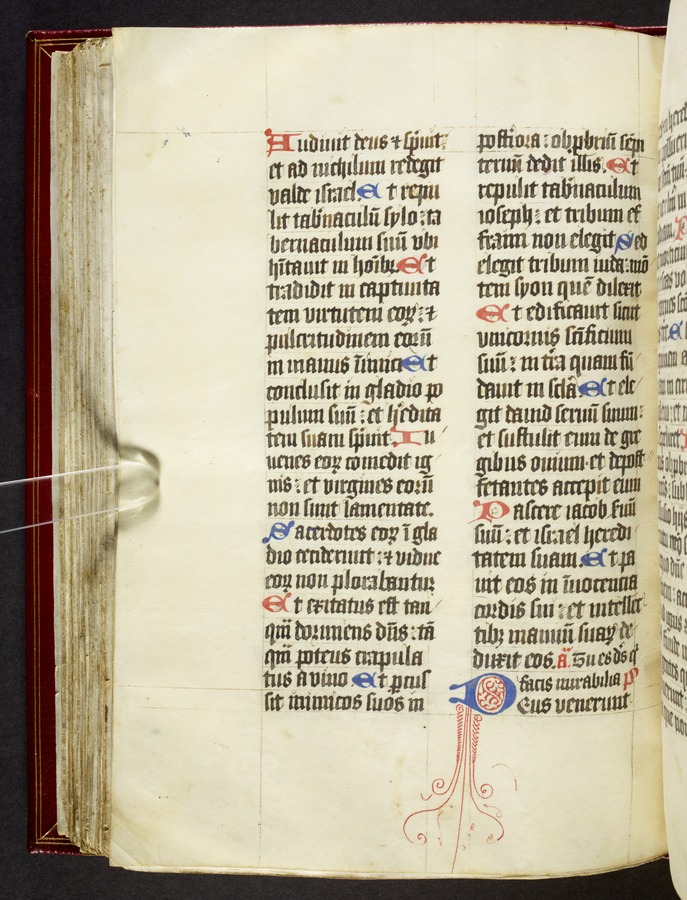 Audiuit deus ⁊ sp̄uit:
et ad nichilum redegit
valde israel. Et repu
lit tab̄naculū sylo: ta
bernaculum suū vbi
hītauit in hoībꝫ. Et
tradidit in captiuita
tem virtutem eoꝝ: ⁊
pulcritudinem eorū
in manus īimici. Et
conclusit in gladio po
pulum suū: et h̓edita
tem suam sp̄uit. Iu
uenes eoꝝ comedit ig
nis: et virgines eorū
non sunt lamentate.
Sacerdotes eoꝝ ī gla
dio ceciderunt: ⁊ vidue
eoꝝ non plorabantur
Et excitatus est tan
qm̄ dormiens dn̄s: tā
qm̄ potens crapula
tus a vino Et p̄cus
sit inimicos suos in
posteriora: obpbriū sēpi
ternū dedit illis. Et
repulit tab̄naculum
ioseph: et tribum ef
fraim non elegit Sed
elegit tribum iuda: mō
tem syon quē dilexit
Et edificauit sicut
vnicornis sc̄ificium
suū: in tr̄a quam fū
dauit in sc̄la Et ele
git dauid seruū suum:
et sustulit eum de gre
gibus ouium: et depost
fetantes accepit eum
Pascere iacob suū
suū: et israel heredi
tatem suam. Et pa
uit eos in īnocencia
cordis sui: et intellec
tibꝫ manuū suaꝝ de
duxit eos. a. Tu es ds̄ q̄
facis mirabilia ps̄
Deus venerunt